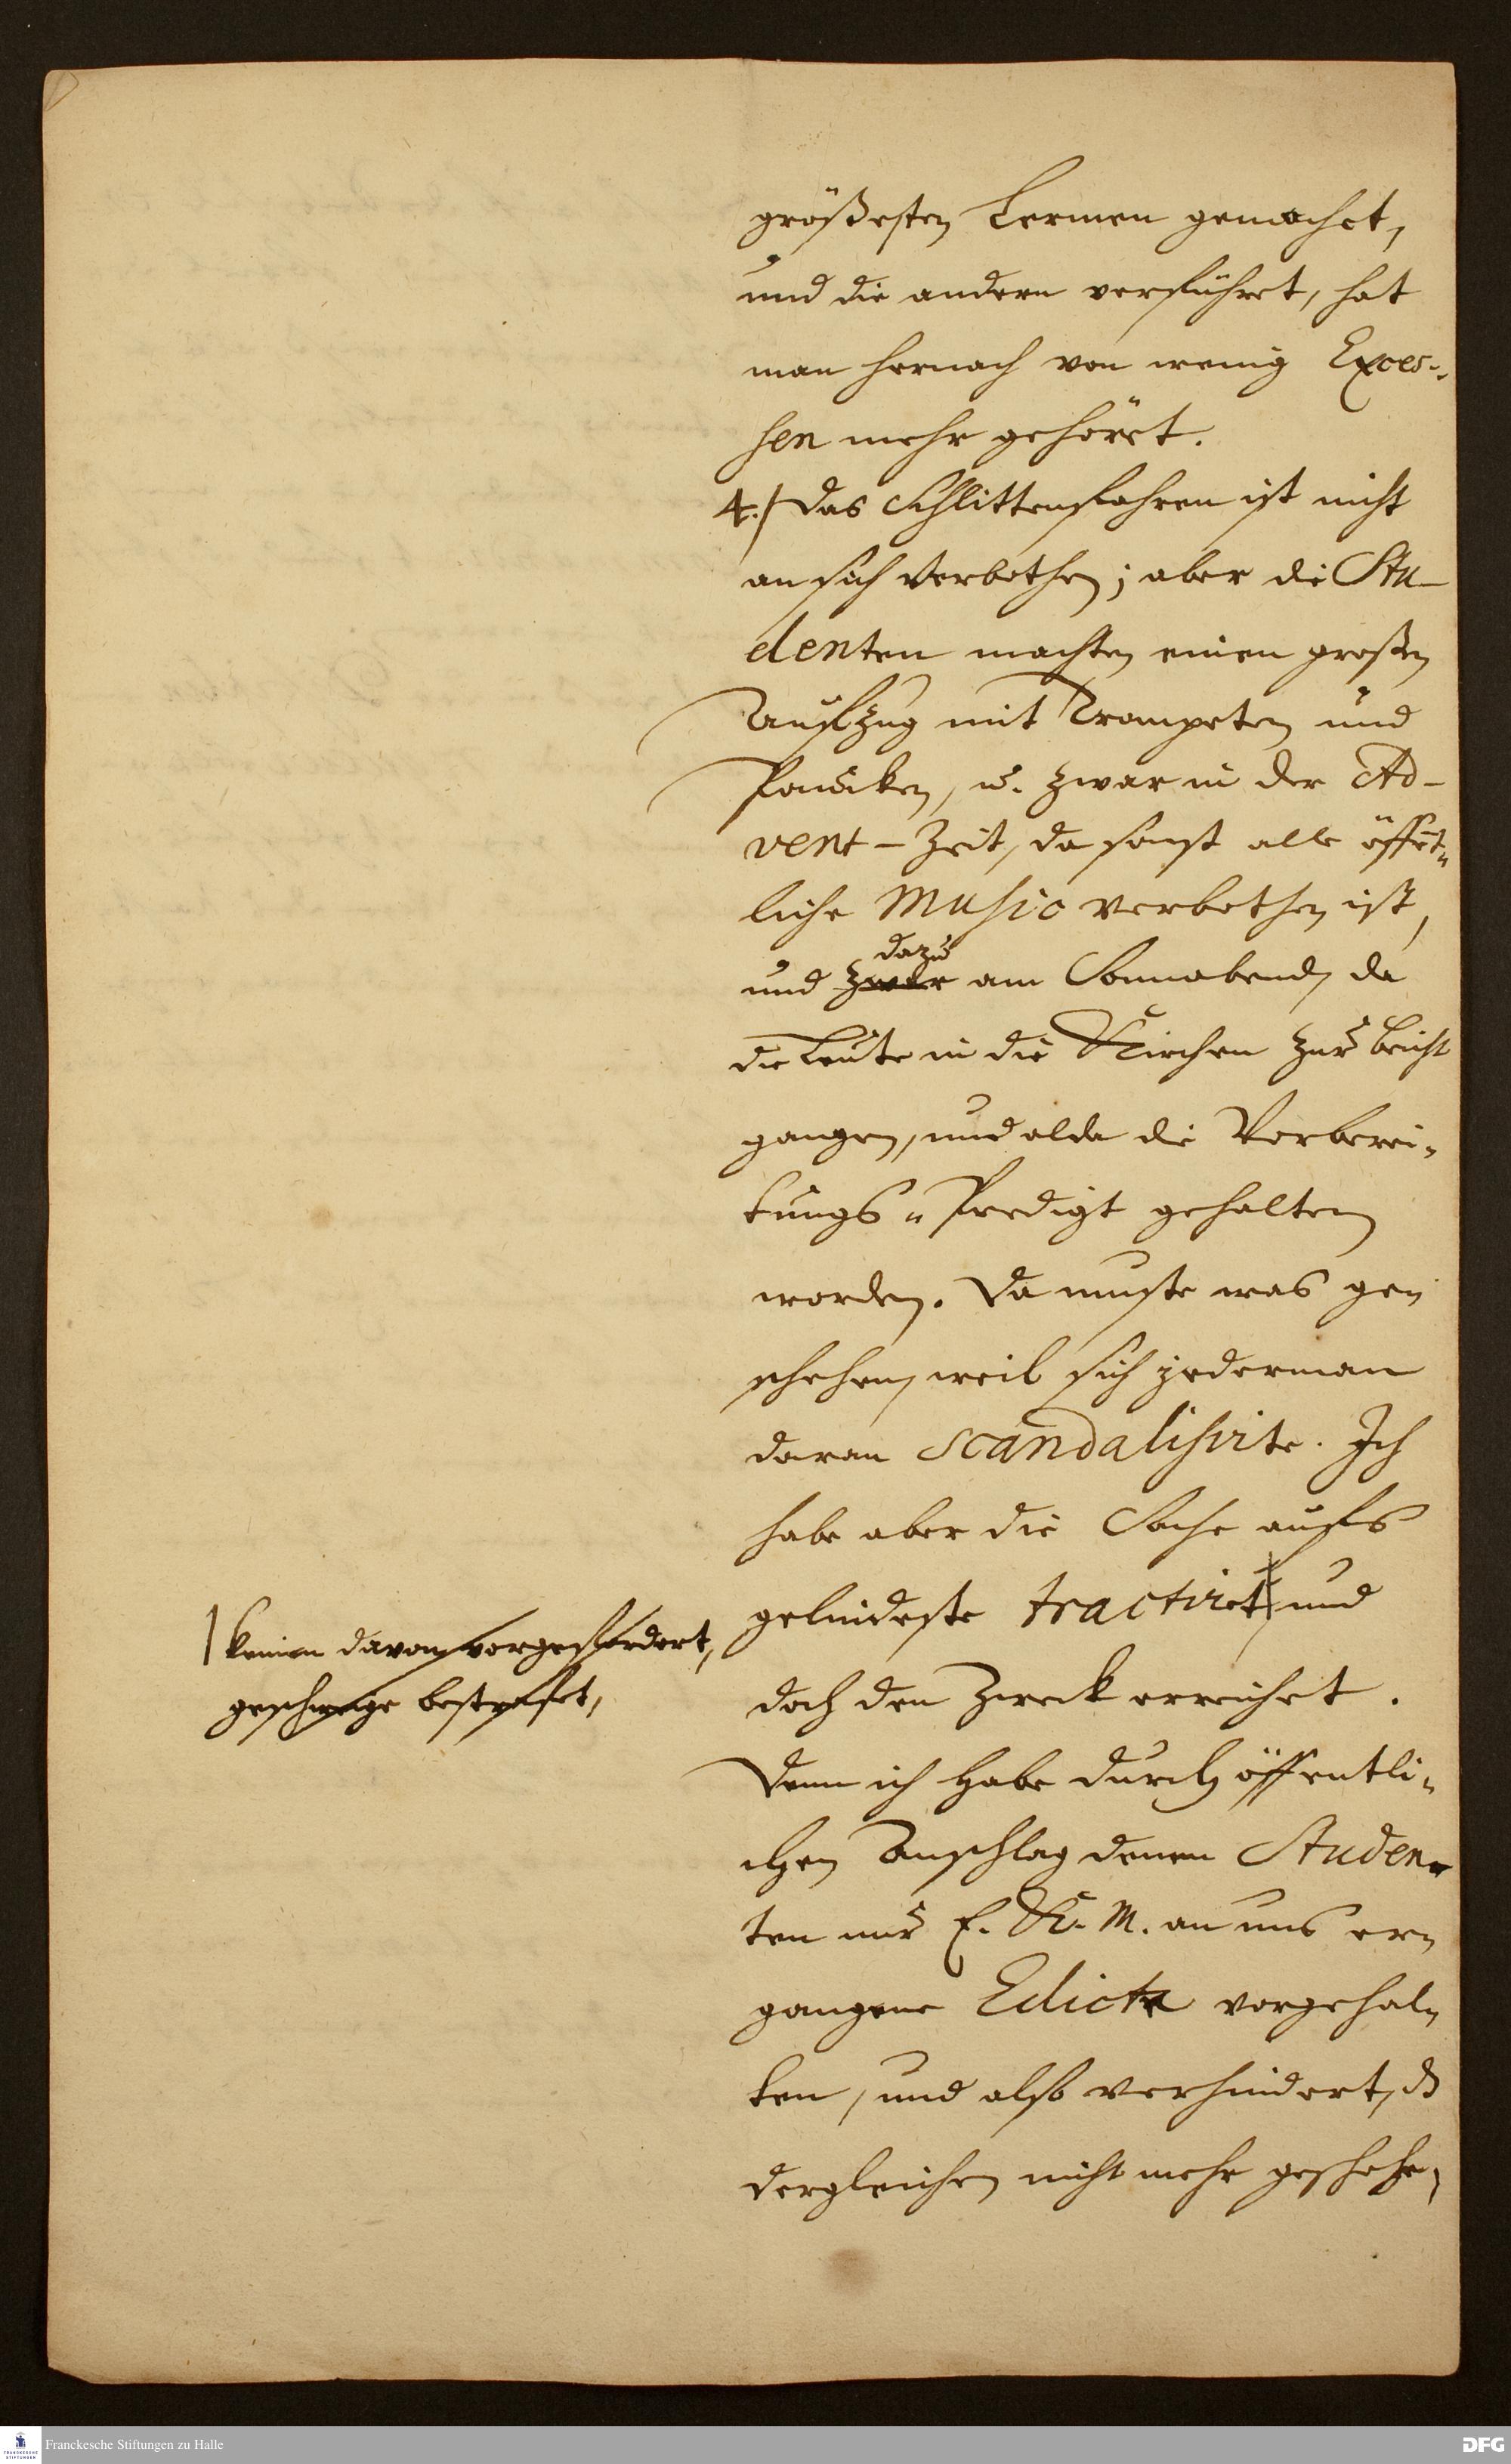 größesten Lermen gemachet,
und die andern verführet, hat
man hernach von wenig Exces-
sen mehr gehöret.
4./ Das Schlittenfahren ist nicht
an sich verbothen; aber die Stu-
denten machten einen großen
Auffzug mit Trompeten und
Paucken, u. zwar in der Ad-
vent-Zeit, da sonst alle öffent-
liche Music verbothen ist,
dazu
und zwar am Sonnabend, da
die Leute in die Kirchen zur Beicht
gangen, und alda die Vorberei-
tungs-Predigt gehalten
worden. Da muste was ge-
schehen, weil sich jederman
daran scandalisirte. Ich
habe aber die Sache aufs
gelindeste tractiret, und
/ keinen davon vorgefordert,
geschweige bestrafet,
doch den Zweck erreichet.
Denn ich habe durch öffentli-
chen Anschlag denen Studen-
ten nur E. K. M. an uns er-
gangene Edicta vorgehal-
ten, und also verhindert, dß
dergleichen nicht mehr geschehe,
Franckesche Stiftungen zu Halle
FRANCKESCHE
STIFTUNGEN
DFG